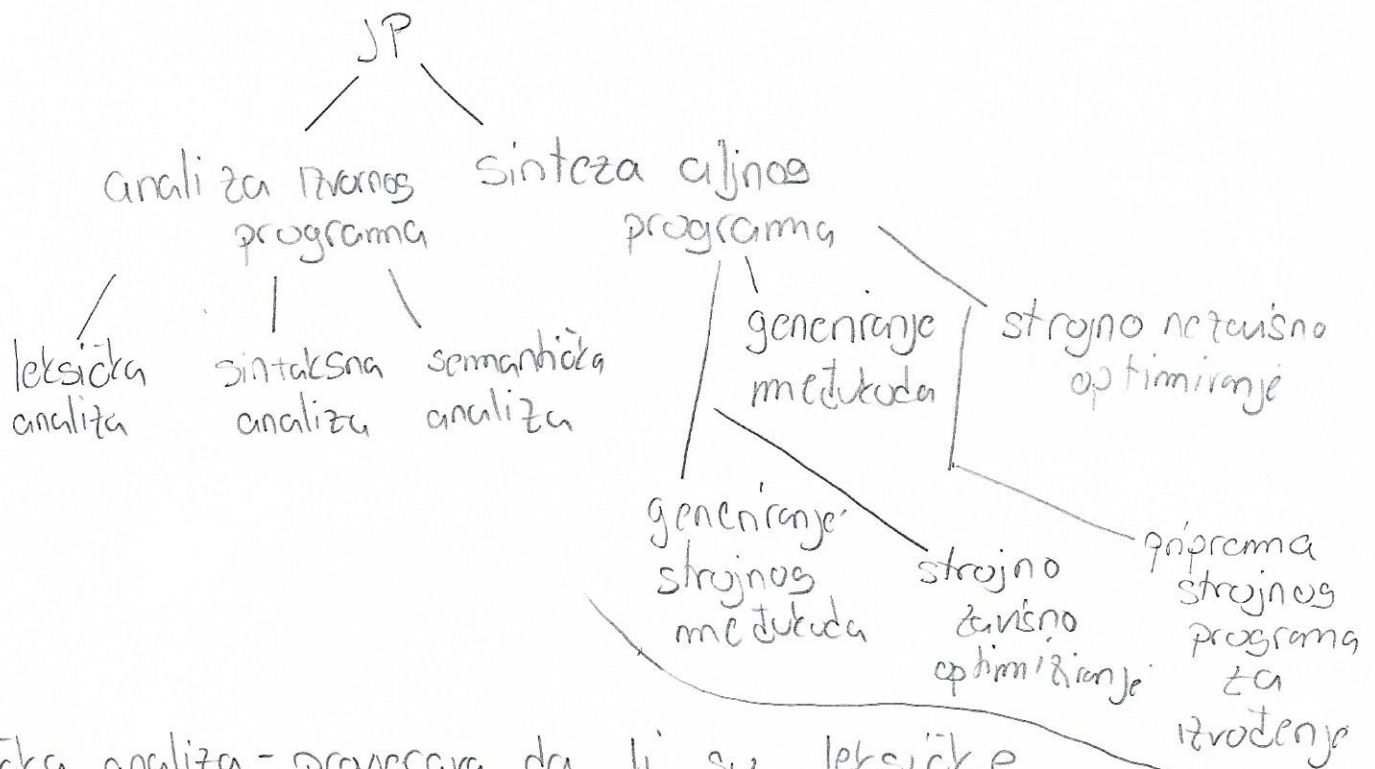 JP
analiza izvornog
programa
sinteza ciljnog
programa
leksička
analiza
sintaksna
analiza
semantička
analiza
generiranje
međukoda
strojno nezavisno
optimiranje
generiranje
strojnog
međukoda
strojno
zavisno
optimiziranje
priprema
strojnog
programa
za
izvođenje
čka analiza - provjerava da li su leksičke